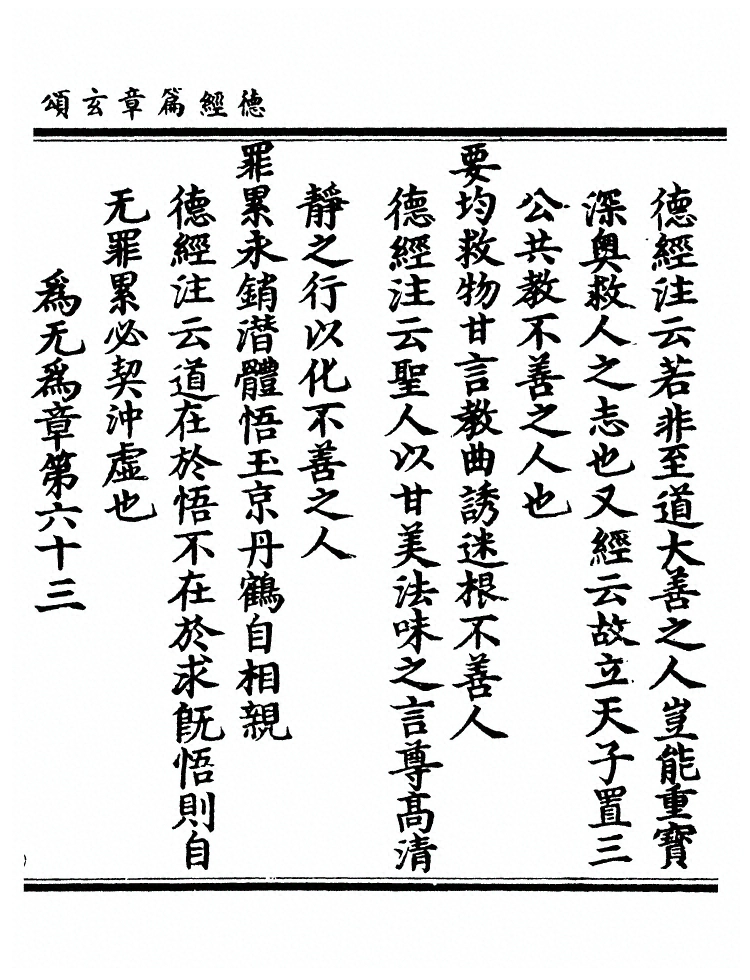 德經篇章玄頌
德經注云若非至道大善之人豈能重寶
深奧救人之志也又經云故立天子置三
公共教不善之人也
要均救物甘言教曲誘迷根不善人
德經注云聖人以甘美法味之言尊髙清
靜之行以化不善之人
罪累永銷潜體悟玉京丹鶴自相親
德經注云道在於悟不在於求旣悟則自
无罪累必契沖虛也
爲无爲章第六十三